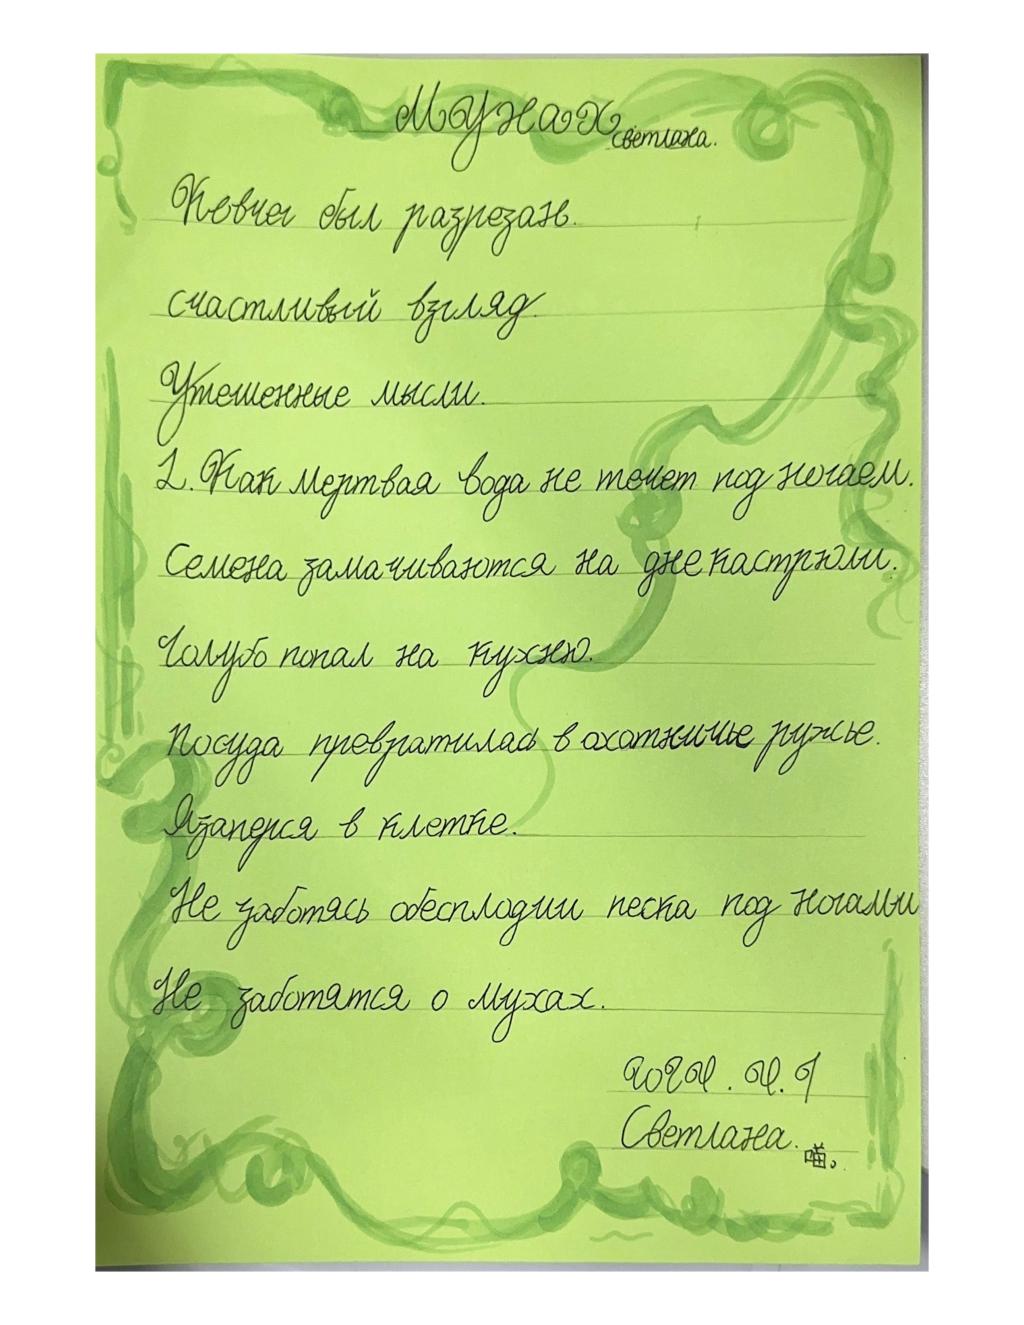 Мунах
светлана.
Ковчег был разрезан.
счастливый взгляд.
Утешенные мысли.
1. Как мертвая вода не течет под ногаем.
Семена замачиваются на дне кастрюли.
Голубо попал на кухню.
Посуда превратилась в охотничье ружье.
Я заперся в клетке.
Не заботясь обесплодии песка под ногами
Не заботятся о мухах.
2024.4.1
Светлана.
喵。